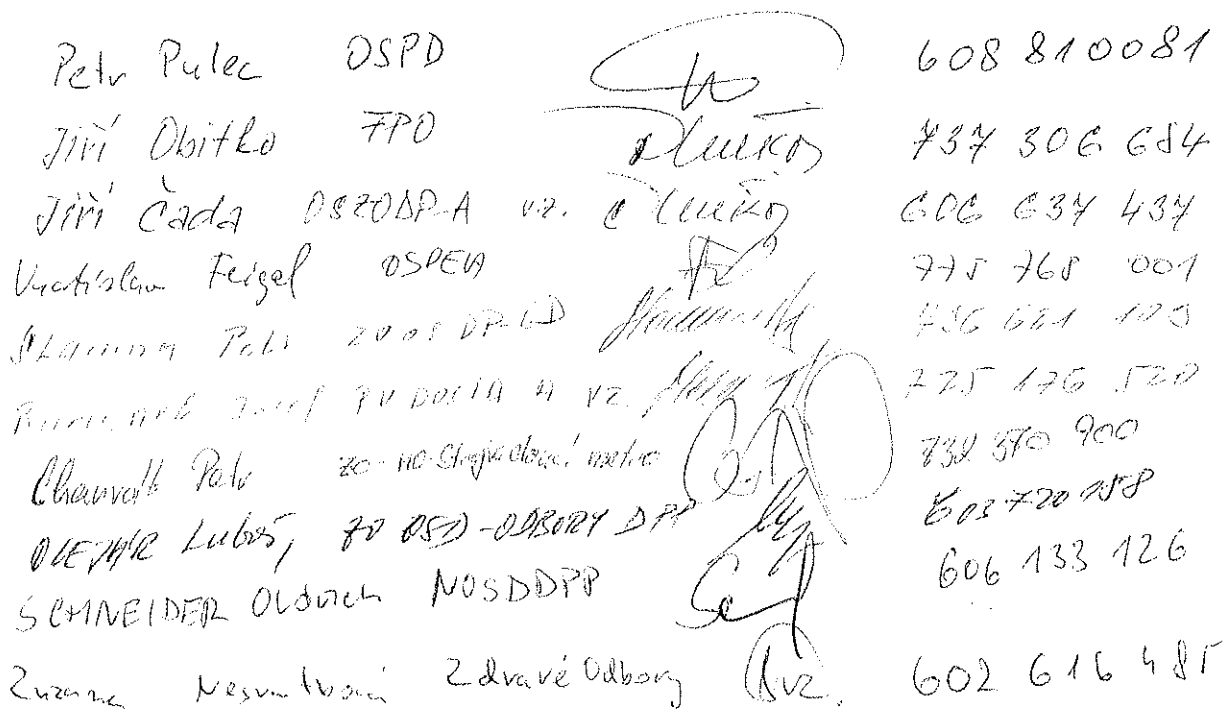 Petr Pulec OSPD 608 810081
Jiří Obitko FPO 737 306 684
Jiří Čada OSZODP-A v.z. 606 637 437
Vratislav Feigel OSPEA 775 768 001
Petr 736 621 109
Josef A vz. 725 176 520
Charvát Petr ZO-HO-Strojvedoucí metra 732 370 900
OLEJÁR Luboš, ZO OSD-ODBORY DPP 603 720 158
SCHNEIDER Oldřich NOSDDPP 606 133 126
Zuzana Zdravé Odbory vz. 602 616 485